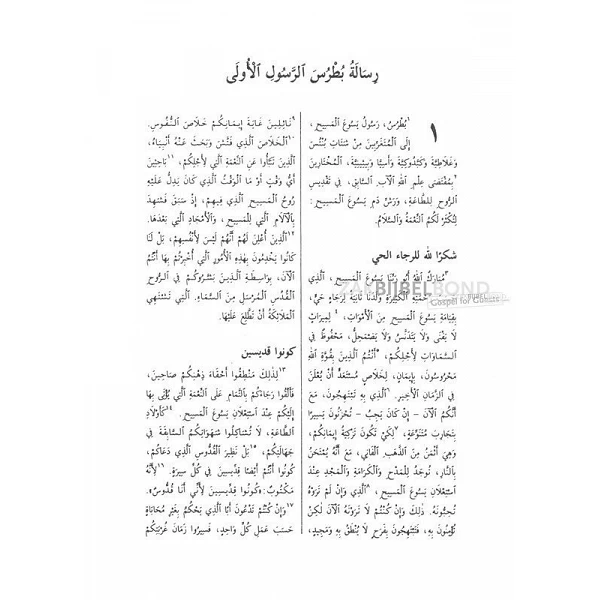 رِسَالَةُ بُطْرُسَ ٱلرَّسُولِ ٱلْأُولَى
١
١بُطْرُسُ، رَسُولُ يَسُوعَ ٱلْمَسِيحِ،
إِلَى ٱلْمُتَغَرِّبِينَ مِنْ شَتَاتِ بُنْتُسَ
وَغَلَاطِيَّةَ وَكَبَّدُوكِيَّةَ وَأَسِيَّا وَبِيثِينِيَّةَ، ٱلْمُخْتَارِينَ
٢بِمُقْتَضَى عِلْمِ ٱللهِ ٱلْآبِ ٱلسَّابِقِ، فِي تَقْدِيسِ
ٱلرُّوحِ لِلطَّاعَةِ، وَرَشِّ دَمِ يَسُوعَ ٱلْمَسِيحِ:
لِتُكْثَرْ لَكُمُ ٱلنِّعْمَةُ وَٱلسَّلَامُ.
شكرًا لله للرجاء الحي
٣مُبَارَكٌ ٱللهُ أَبُو رَبِّنَا يَسُوعَ ٱلْمَسِيحِ، ٱلَّذِي
ٱلْكَثِيرَةِ وَلَدَنَا ثَانِيَةً لِرَجَاءٍ حَيٍّ،
بِقِيَامَةِ يَسُوعَ ٱلْمَسِيحِ مِنَ ٱلْأَمْوَاتِ، ٤لِمِيرَاثٍ
لَا يَفْنَى وَلَا يَتَدَنَّسُ وَلَا يَضْمَحِلُّ، مَحْفُوظٌ فِي
ٱلسَّمَاوَاتِ لِأَجْلِكُمْ، ٥أَنْتُمُ ٱلَّذِينَ بِقُوَّةِ ٱللهِ
مَحْرُوسُونَ، بِإِيمَانٍ، لِخَلَاصٍ مُسْتَعَدٍّ أَنْ يُعْلَنَ
فِي ٱلزَّمَانِ ٱلْأَخِيرِ. ٦ٱلَّذِي بِهِ تَبْتَهِجُونَ، مَعَ
أَنَّكُمُ ٱلْآنَ – إِنْ كَانَ يَجِبُ – تُحْزَنُونَ يَسِيرًا
بِتَجَارِبَ مُتَنَوِّعَةٍ، ٧لِكَيْ تَكُونَ تَزْكِيَةُ إِيمَانِكُمْ،
وَهِيَ أَثْمَنُ مِنَ ٱلذَّهَبِ ٱلْفَانِي، مَعَ أَنَّهُ يُمْتَحَنُ
بِٱلنَّارِ، تُوجَدُ لِلْمَدْحِ وَٱلْكَرَامَةِ وَٱلْمَجْدِ عِنْدَ
ٱسْتِعْلَانِ يَسُوعَ ٱلْمَسِيحِ، ٨ٱلَّذِي وَإِنْ لَمْ تَرَوْهُ
تُحِبُّونَهُ. ذَلِكَ وَإِنْ كُنْتُمْ لَا تَرَوْنَهُ ٱلْآنَ لَكِنْ
تُؤْمِنُونَ بِهِ، فَتَبْتَهِجُونَ بِفَرَحٍ لَا يُنْطَقُ بِهِ وَمَجِيدٍ،
٩نَائِلِينَ غَايَةَ إِيمَانِكُمْ خَلَاصَ ٱلنُّفُوسِ.
١٠ٱلْخَلَاصَ ٱلَّذِي فَتَّشَ وَبَحَثَ عَنْهُ أَنْبِيَاءُ،
ٱلَّذِينَ تَنَبَّأُوا عَنِ ٱلنِّعْمَةِ ٱلَّتِي لِأَجْلِكُمْ، ١١بَاحِثِينَ
أَيُّ وَقْتٍ أَوْ مَا ٱلْوَقْتُ ٱلَّذِي كَانَ يَدِلُّ عَلَيْهِ
رُوحُ ٱلْمَسِيحِ ٱلَّذِي فِيهِمْ، إِذْ سَبَقَ فَشَهِدَ
بِٱلْآلَامِ ٱلَّتِي لِلْمَسِيحِ، وَٱلْأَمْجَادِ ٱلَّتِي بَعْدَهَا.
١٢ٱلَّذِينَ أُعْلِنَ لَهُمْ أَنَّهُمْ لَيْسَ لِأَنْفُسِهِمْ، بَلْ لَنَا
كَانُوا يَخْدِمُونَ بِهَذِهِ ٱلْأُمُورِ ٱلَّتِي أُخْبِرْتُمْ بِهَا أَنْتُمُ
ٱلْآنَ، بِوَاسِطَةِ ٱلَّذِينَ بَشَّرُوكُمْ فِي ٱلرُّوحِ
ٱلْقُدُسِ ٱلْمُرْسَلِ مِنَ ٱلسَّمَاءِ. ٱلَّتِي تَشْتَهِي
ٱلْمَلَائِكَةُ أَنْ تَطَّلِعَ عَلَيْهَا.
كونوا قديسين
١٣لِذَلِكَ مَنْطِقُوا أَحْقَاءَ ذِهْنِكُمْ صَاحِينَ،
فَأَلْقُوا رَجَاءَكُمْ بِٱلتَّمَامِ عَلَى ٱلنِّعْمَةِ ٱلَّتِي يُؤْتَى بِهَا
إِلَيْكُمْ عِنْدَ ٱسْتِعْلَانِ يَسُوعَ ٱلْمَسِيحِ. ١٤كَأَوْلَادِ
ٱلطَّاعَةِ، لَا تُشَاكِلُوا شَهَوَاتِكُمُ ٱلسَّابِقَةَ فِي
جَهَالَتِكُمْ، ١٥بَلْ نَظِيرَ ٱلْقُدُّوسِ ٱلَّذِي دَعَاكُمْ،
كُونُوا أَنْتُمْ أَيْضًا قِدِّيسِينَ فِي كُلِّ سِيرَةٍ. ١٦لِأَنَّهُ
مَكْتُوبٌ: «كُونُوا قِدِّيسِينَ لِأَنِّي أَنَا قُدُّوسٌ».
١٧وَإِنْ كُنْتُمْ تَدْعُونَ أَبًا ٱلَّذِي يَحْكُمُ بِغَيْرِ مُحَابَاةٍ
حَسَبَ عَمَلِ كُلِّ وَاحِدٍ، فَسِيرُوا زَمَانَ غُرْبَتِكُمْ
ZAKBIJBELBOND
Gospel for Guests